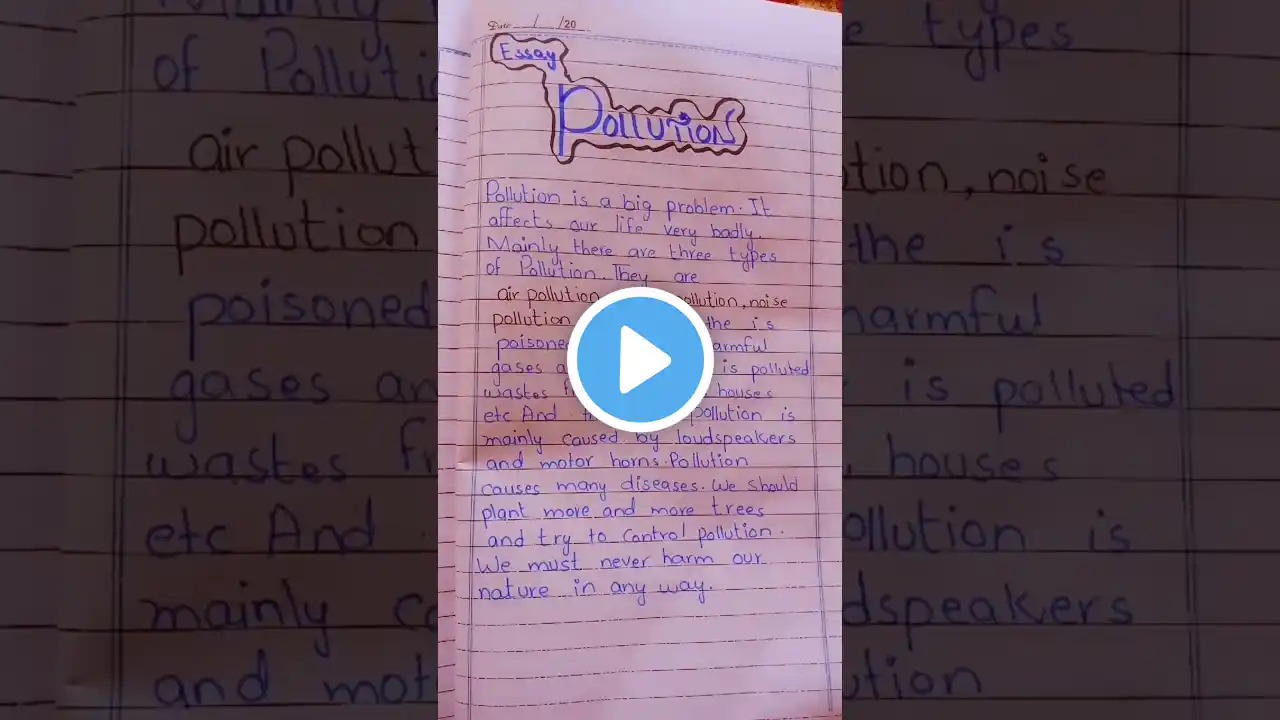 Date / /20
Essay
Pollution
Pollution is a big problem. It
affects our life very badly.
Mainly there are three types
of Pollution. They are
air pollution ollution, noise
pollution the is
poisoned armful
gases a is polluted
wastes f houses
etc And pollution is
mainly caused by loudspeakers
and motor horns. Pollution
causes many diseases. We should
plant more and more trees
and try to control pollution.
We must never harm our
nature in any way.